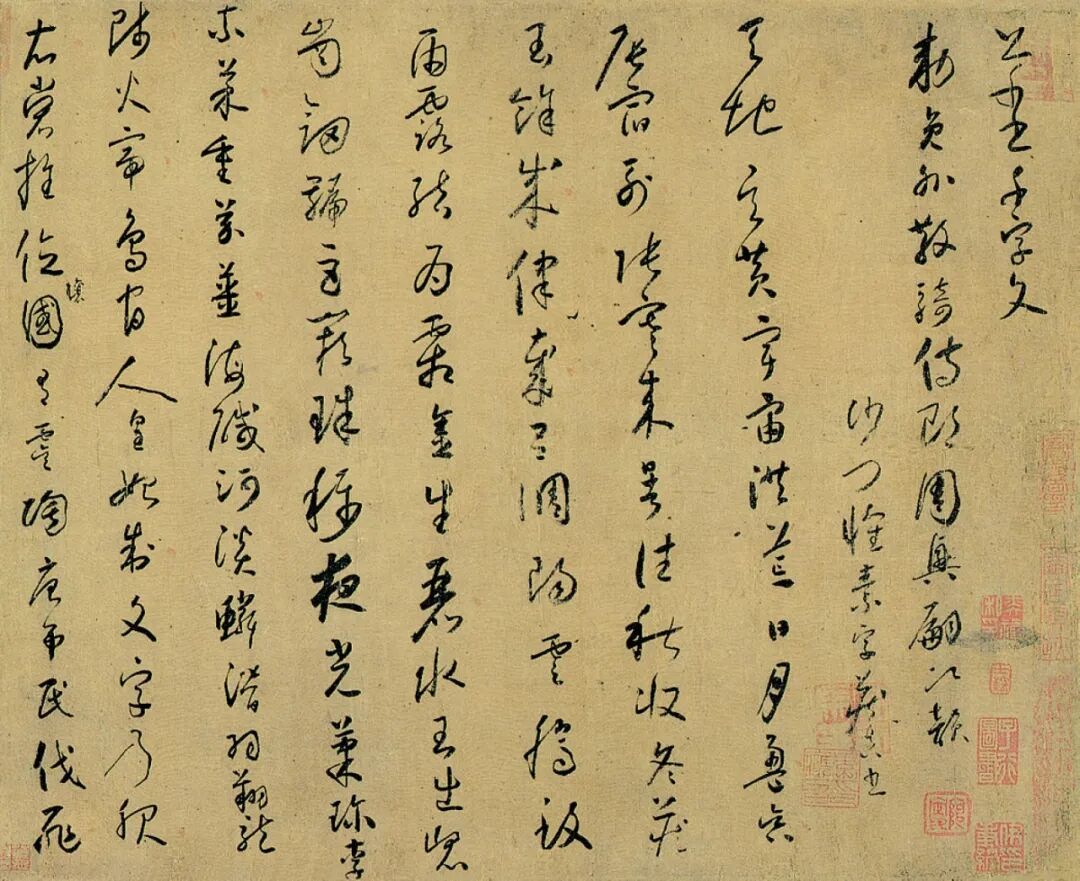 千字文
勅員外散騎侍郎周興嗣次韻
沙門懷素字藏真書
天地玄黃宇宙洪荒日月盈昃
辰宿列張寒來暑往秋收冬藏
閏餘成律歲呂調陽雲騰致
雨露結為霜金生麗水玉出崑
崗劍號巨闕珠稱夜光菓珍李
柰菜重芥薑海鹹河淡鱗潛羽翔龍
師火帝鳥官人皇始制文字乃服
衣裳推位讓國有虞陶唐弔民伐罪